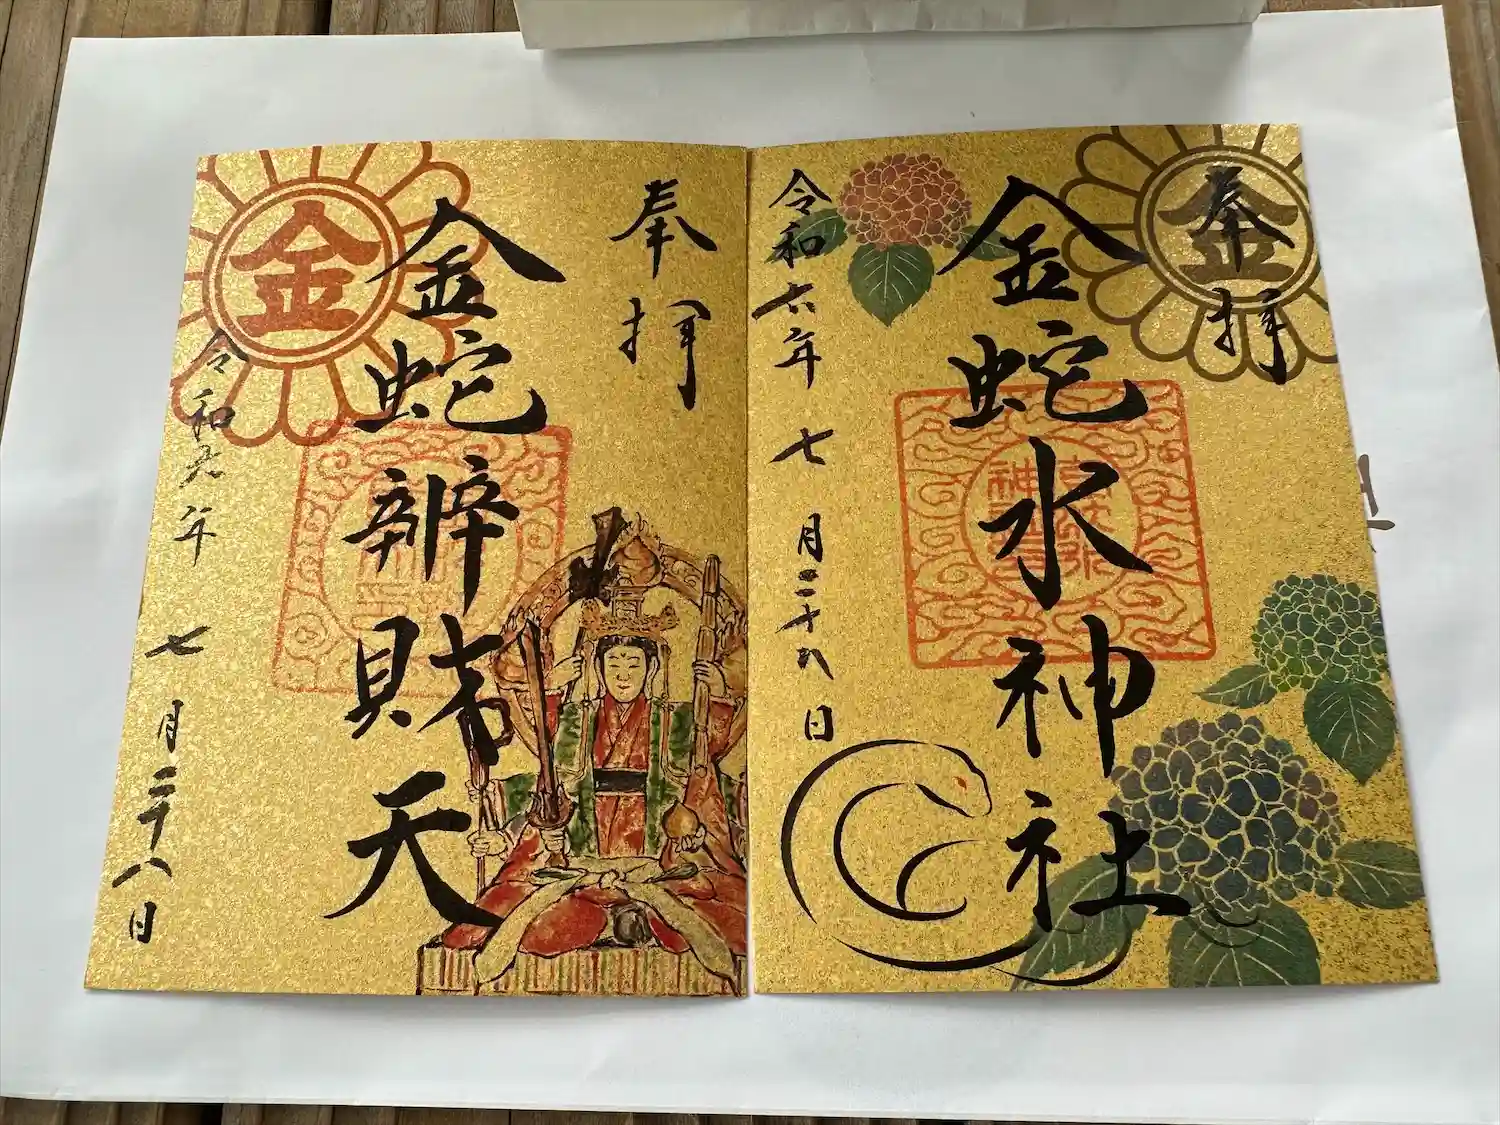 奉拝
金
金蛇水神社
令和六年 七月二十九日
奉拝
金蛇辨財天
金
令和元年 七月二十八日